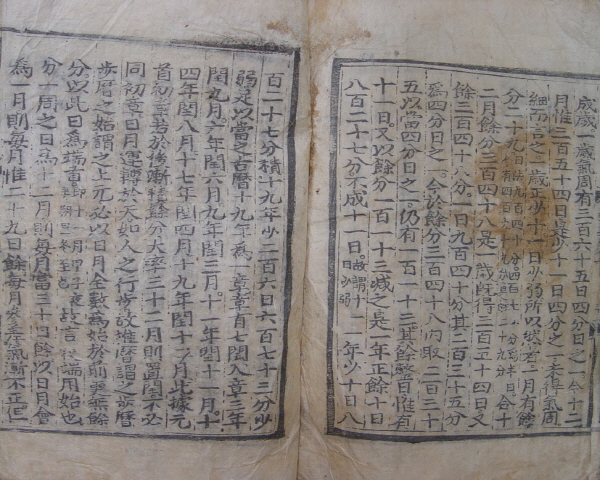 成歲一歲氣周有三百六十五日四分日之一今十二
月惟三百五十四日是少十一日四分日之一未得氣周
細而言之一歲正少十一日少弱所以然者一月有餘
分二十九合十
二月餘分三百四十八是一歲既得三百五十四日又
餘三百四十八分一日九百四十分其二百三十五分
爲四分日之一今於餘分三百四十八內取二百三十
五以當四分日之一仍有一百一十三其餘整日惟有
十一日又以餘分一百一十三減之是一年正餘十日
八百二十七分不成十一日故謂十一日少弱一年少十日八
百二十七分積十九年少二百六日六百七十三分少
弱足以當之古曆十九年爲一章章有七閏入章三年
閏九月六年閏六月九年閏三月十一年閏十一月十
四年閏八月十七年閏四月十九年閏十二月此據元
首初章若於後漸積餘分大率三十二月則置閏不必
同初章日月運轉於天如人之行步故推曆謂之步曆
步曆之始謂之上元必以日月全數爲始於前更無餘
分以此日爲端首即十一月甲子夜朔旦冬至也故言履端用始也
分一周之日爲十二月則每月當三十日餘以日月會
爲一月則每月惟二十九日餘每月參差氣漸不正但